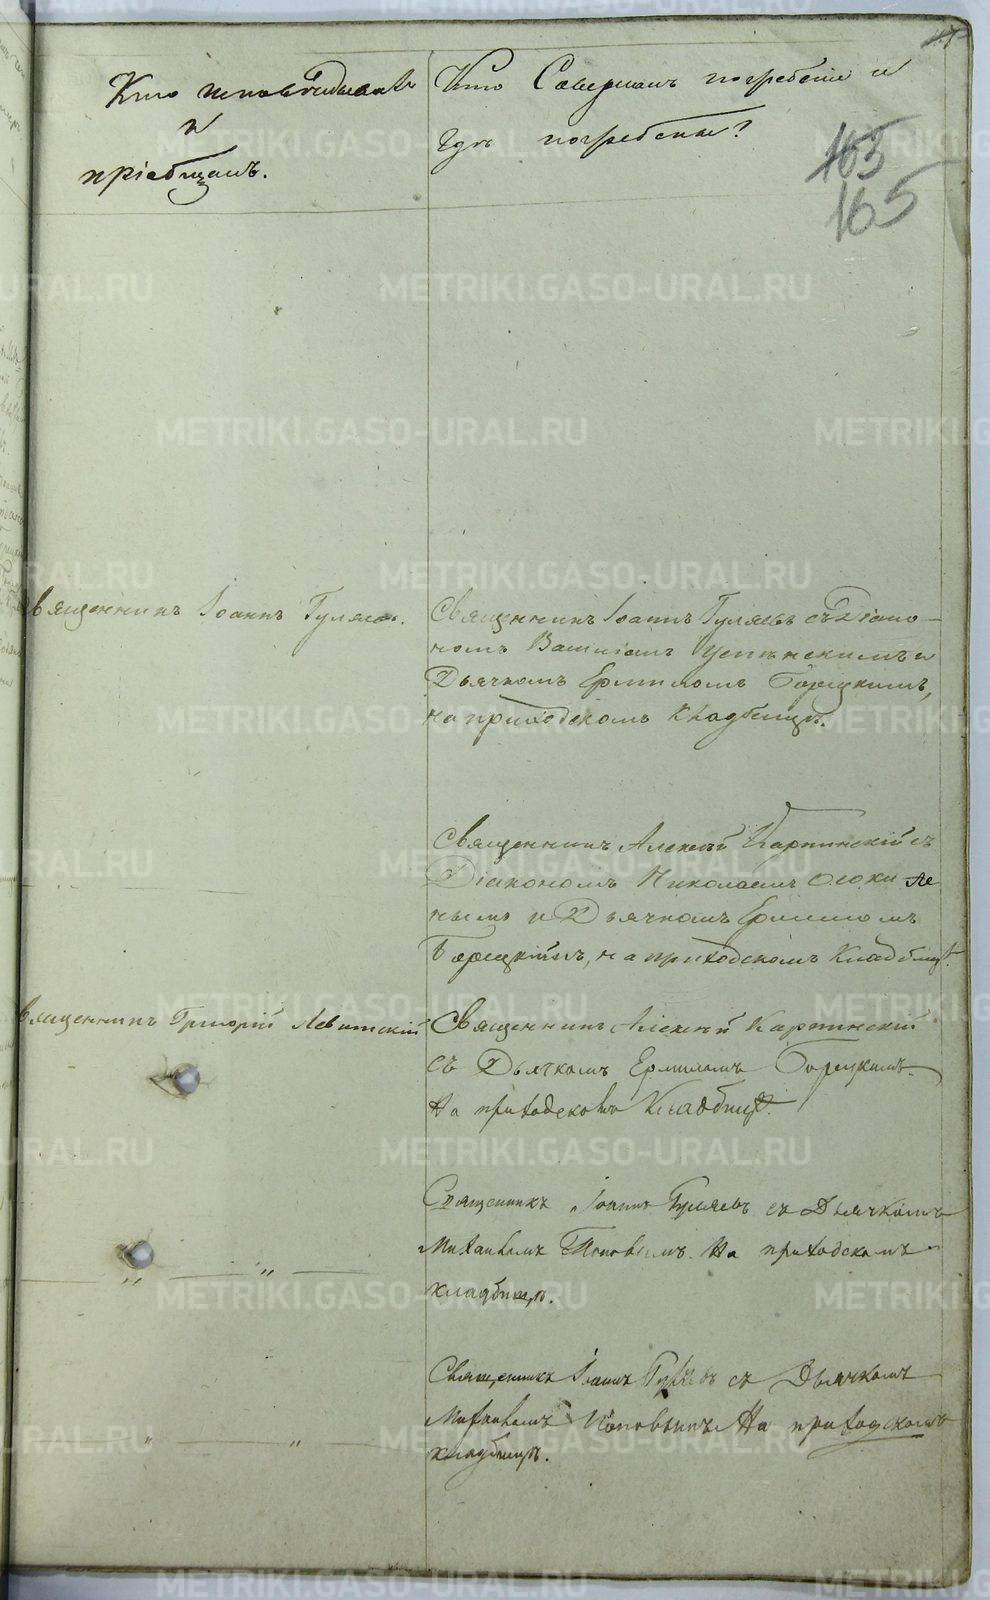 Кто исповѣдывалъ
и
пріобщалъ.
Кто Совершалъ погребеніе и
гдѣ погребены?
163
165
Священникъ Іоаннъ Гуляевъ.
Священникъ Іоаннъ Гуляевъ съ Діако-
номъ Василіемъ Успенскимъ и
Дьячкомъ Ермиломъ Борецкимъ,
на приходскомъ кладбищѣ.
Священникъ Алексѣй Карпинскій съ
Діакономъ Николаемъ
нымъ и Дьячкомъ Ермиломъ
Борецкимъ, на приходскомъ Кладбищѣ.
Священникъ Григорій Левитскій
Священникъ Алексѣй Карпинскій
съ Дьячкомъ Ермиломъ Борецкимъ.
На приходскомъ Кладбищѣ.
Священникъ Іоаннъ Гуляевъ съ Дьячкомъ
Михаиломъ Поповымъ. На приходскомъ
кладбищѣ.
„ „
Священникъ Іоаннъ Гуляевъ съ Дьячкомъ
Михаиломъ Поповымъ На приходскомъ
кладбищѣ.
„ „
METRIKI.GASO-URAL.RU